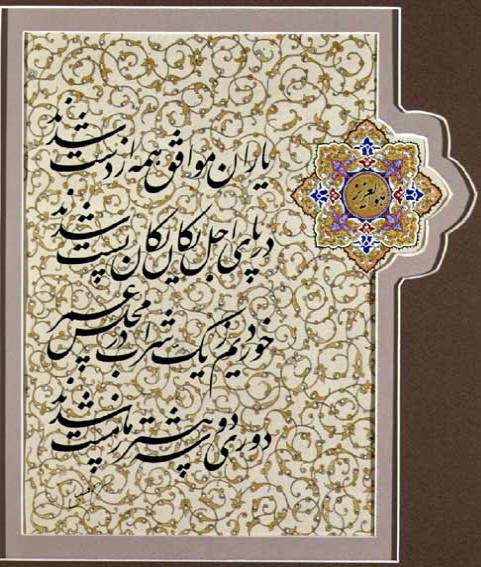 هو العزیز
یاران موافق همه از دست شدند
در پای اجل یکان یکان پست شدند
خوردیم ز یک شراب در مجلس عمر
دوری دو سه پیشتر ز ما مست شدند